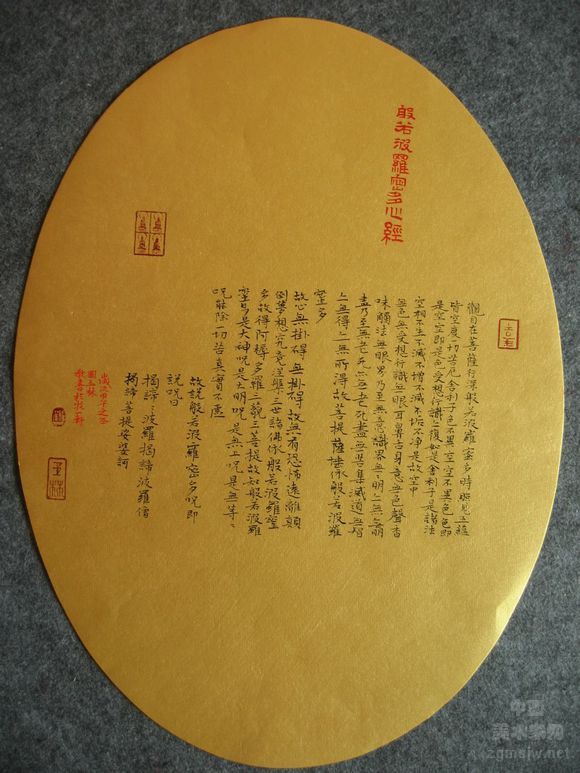 般若波羅密多心經
觀自在菩薩行深般若波羅蜜多時照見五蘊
皆空度一切苦厄舍利子色不異空空不異色色即
是空空即是色受想行識亦復如是舍利子是諸法
空相不生不滅不垢不淨不增不減是故空中
無色無受想行識無眼耳鼻舌身意無色聲香
味觸法無眼界乃至無意識界無無明亦無無明
盡乃至無老死亦無老死盡無苦集滅道無智
亦無得以無所得故菩提薩埵依般若波羅
蜜多
故心無掛碍無掛碍故無有恐怖遠離顛
倒夢想究竟涅槃三世諸佛依般若波羅蜜
多故得阿耨多羅三藐三菩提故知般若波羅
蜜是大神咒是大明咒是無上咒是無等々
咒能除一切苦真實不虛
故說般若波羅密多咒即
說咒曰
揭諦々波羅揭諦波羅僧
揭諦菩提娑婆訶
中国
美术家网
zgmsjw.net